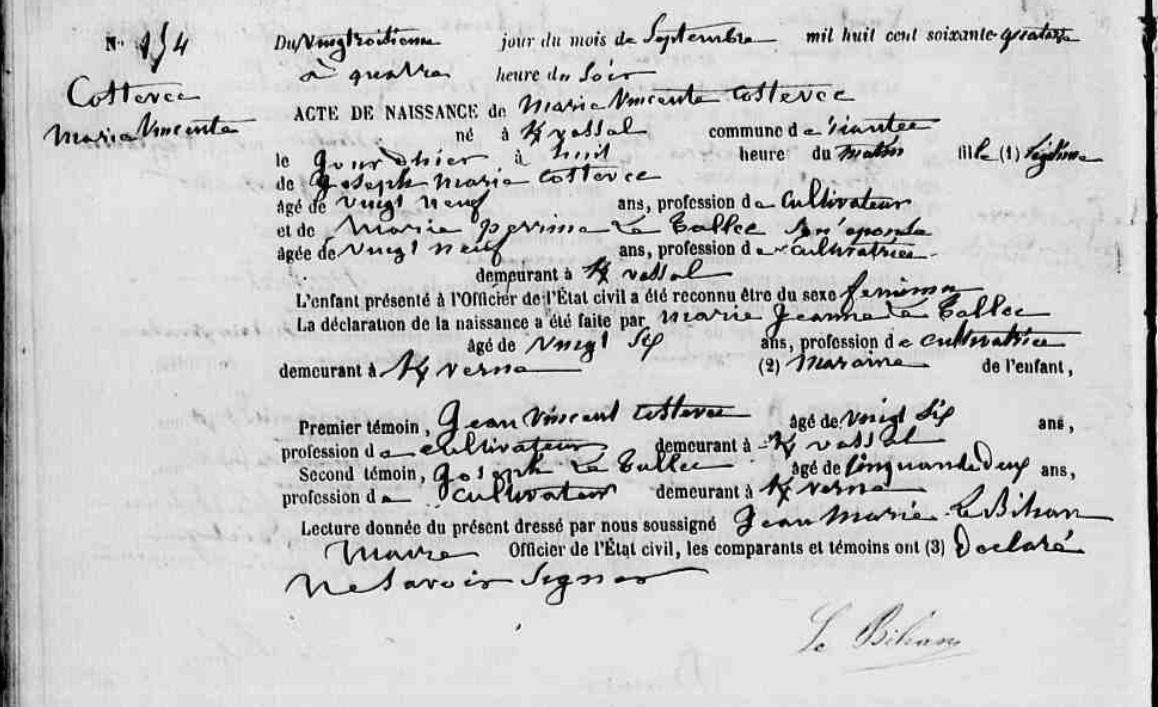 N° 154
Costevec
Marie Vincente
Du vingtroisieme jour du mois de Septembre mil huit cent soixante quatorze
à quatre heure du Soir
ACTE DE NAISSANCE de Marie Vincente Costevec
né à K/ vassal commune de
le jourdhier à huit heure du matin fille (1) légitime
de Joseph Marie Costevec
âgé de vingt neuf ans, profession de Cultivateur
et de Marie perrine Le Tallec Son épouse
âgée de vingt neuf ans, profession de cultivatrice
demeurant à K/ vassal
L'enfant présenté à l'Officier de l'État civil a été reconnu être du sexe feminin
La déclaration de la naissance a été faite par Marie Jeanne Le Tallec
âgé de vingt Six ans, profession de cultivatrice
demeurant à K/ verna (2) maraine de l'enfant,
Premier témoin, Jean Vincent Costevec âgé de vingt Six ans,
profession de cultivateur demeurant à K/ vassal
Second témoin, Joseph Le Tallec âgé de Cinquante deux ans,
profession de cultivateur demeurant à K/ verna
Lecture donnée du présent dressé par nous soussigné Jean Marie Le Bihan
Maire Officier de l'État civil, les comparants et témoins ont (3) Déclaré
Ne Savoir Signer
Le Bihan